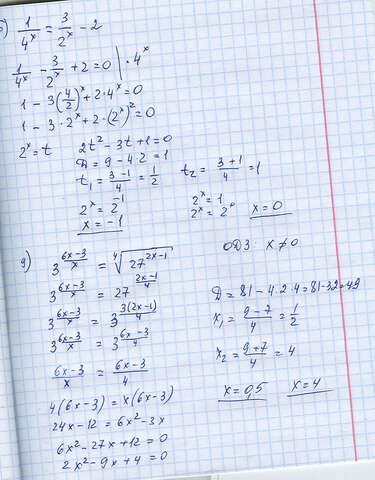 б) 1/4^x = 3/2^x - 2
1/4^x - 3/2^x + 2 = 0 | · 4^x
1 - 3(4/2)^x + 2·4^x = 0
1 - 3·2^x + 2·(2^x)^2 = 0
2^x = t 2t^2 - 3t + 1 = 0
D = 9 - 4·2 = 1
t1 = (3-1)/4 = 1/2 t2 = (3+1)/4 = 1
2^x = 2^-1 2^x = 1
x = -1 2^x = 2^0 x = 0
g) 3^((6x-3)/x) = ⁴√(27^(2x-1)) ОДЗ: x ≠ 0
3^((6x-3)/x) = 27^((2x-1)/4)
3^((6x-3)/x) = 3^(3(2x-1)/4)
3^((6x-3)/x) = 3^((6x-3)/4)
(6x-3)/x = (6x-3)/4
4(6x-3) = x(6x-3)
24x - 12 = 6x^2 - 3x
6x^2 - 27x + 12 = 0
2x^2 - 9x + 4 = 0
D = 81 - 4·2·4 = 81 - 32 = 49
x1 = (9-7)/4 = 1/2
x2 = (9+7)/4 = 4
x = 0,5 x = 4